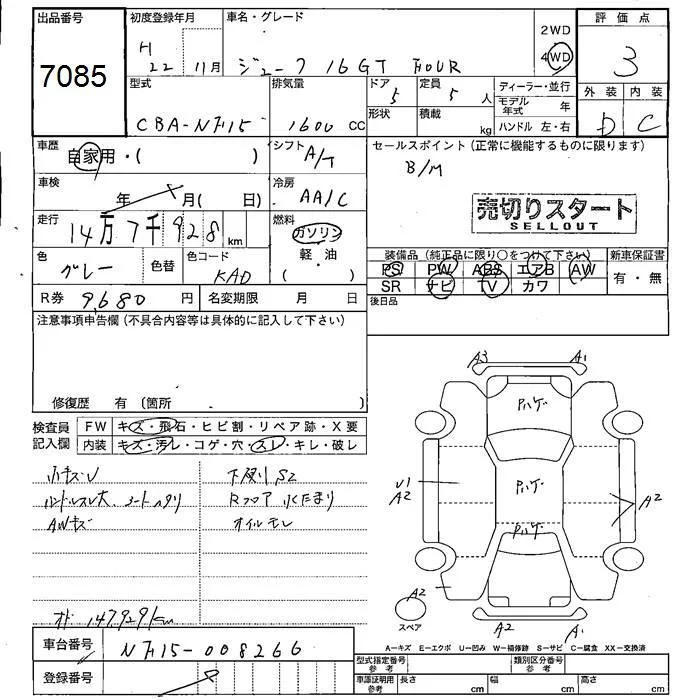 出品番号
7085
初度登録年月
H
22 11月
車名・グレード
ジューク 16GT FOUR
2WD
4WD
評価点
3
外装 内装
D C
型式
CBA-NF15
排気量
1600 CC
ドア
5
形状
定員
5 人
積載
kg
ディーラー・並行
モデル年式 年
ハンドル 左・右
車歴
自家用・( )
シフト
A/T
セールスポイント (正常に機能するものに限ります)
B/M
売切りスタート
SELLOUT
車検
年 月( 日)
冷房
AA/C
走行
14万7千928 km
燃料
ガソリン
軽・油
( )
色
グレー
色替
色コード
KAD
装備品 (純正品に限り○をつけて下さい)
PS PW ABS エアB AW
SR ナビ TV カワ
新車保証書
有・無
後日品
R券 9,680 円
名変期限 月 日
注意事項申告欄 (不具合内容等は具体的に記入して下さい)
修復歴 有 (箇所 )
検査員記入欄
FW キズ・飛石・ヒビ割・リペア跡・X要
内装 キズ・汚レ・コゲ・穴・スレ・キレ・破レ
小キズU
ハンドルスレ大、シートヘタリ
AWキズ
下廻りS2
Rフロア 水たまり
オイルモレ
オド 147,929km
A3 A1
U1
A2
A2
A2
A2 A1
スペア
A-キズ E-エクボ U-凹み W-補修跡 S-サビ C-腐食 XX-交換済
車台番号
NF15-008266
登録番号
型式指定番号
参考
類別区分番号
参考
車庫証明用
参考
長さ cm
幅 cm
高さ cm